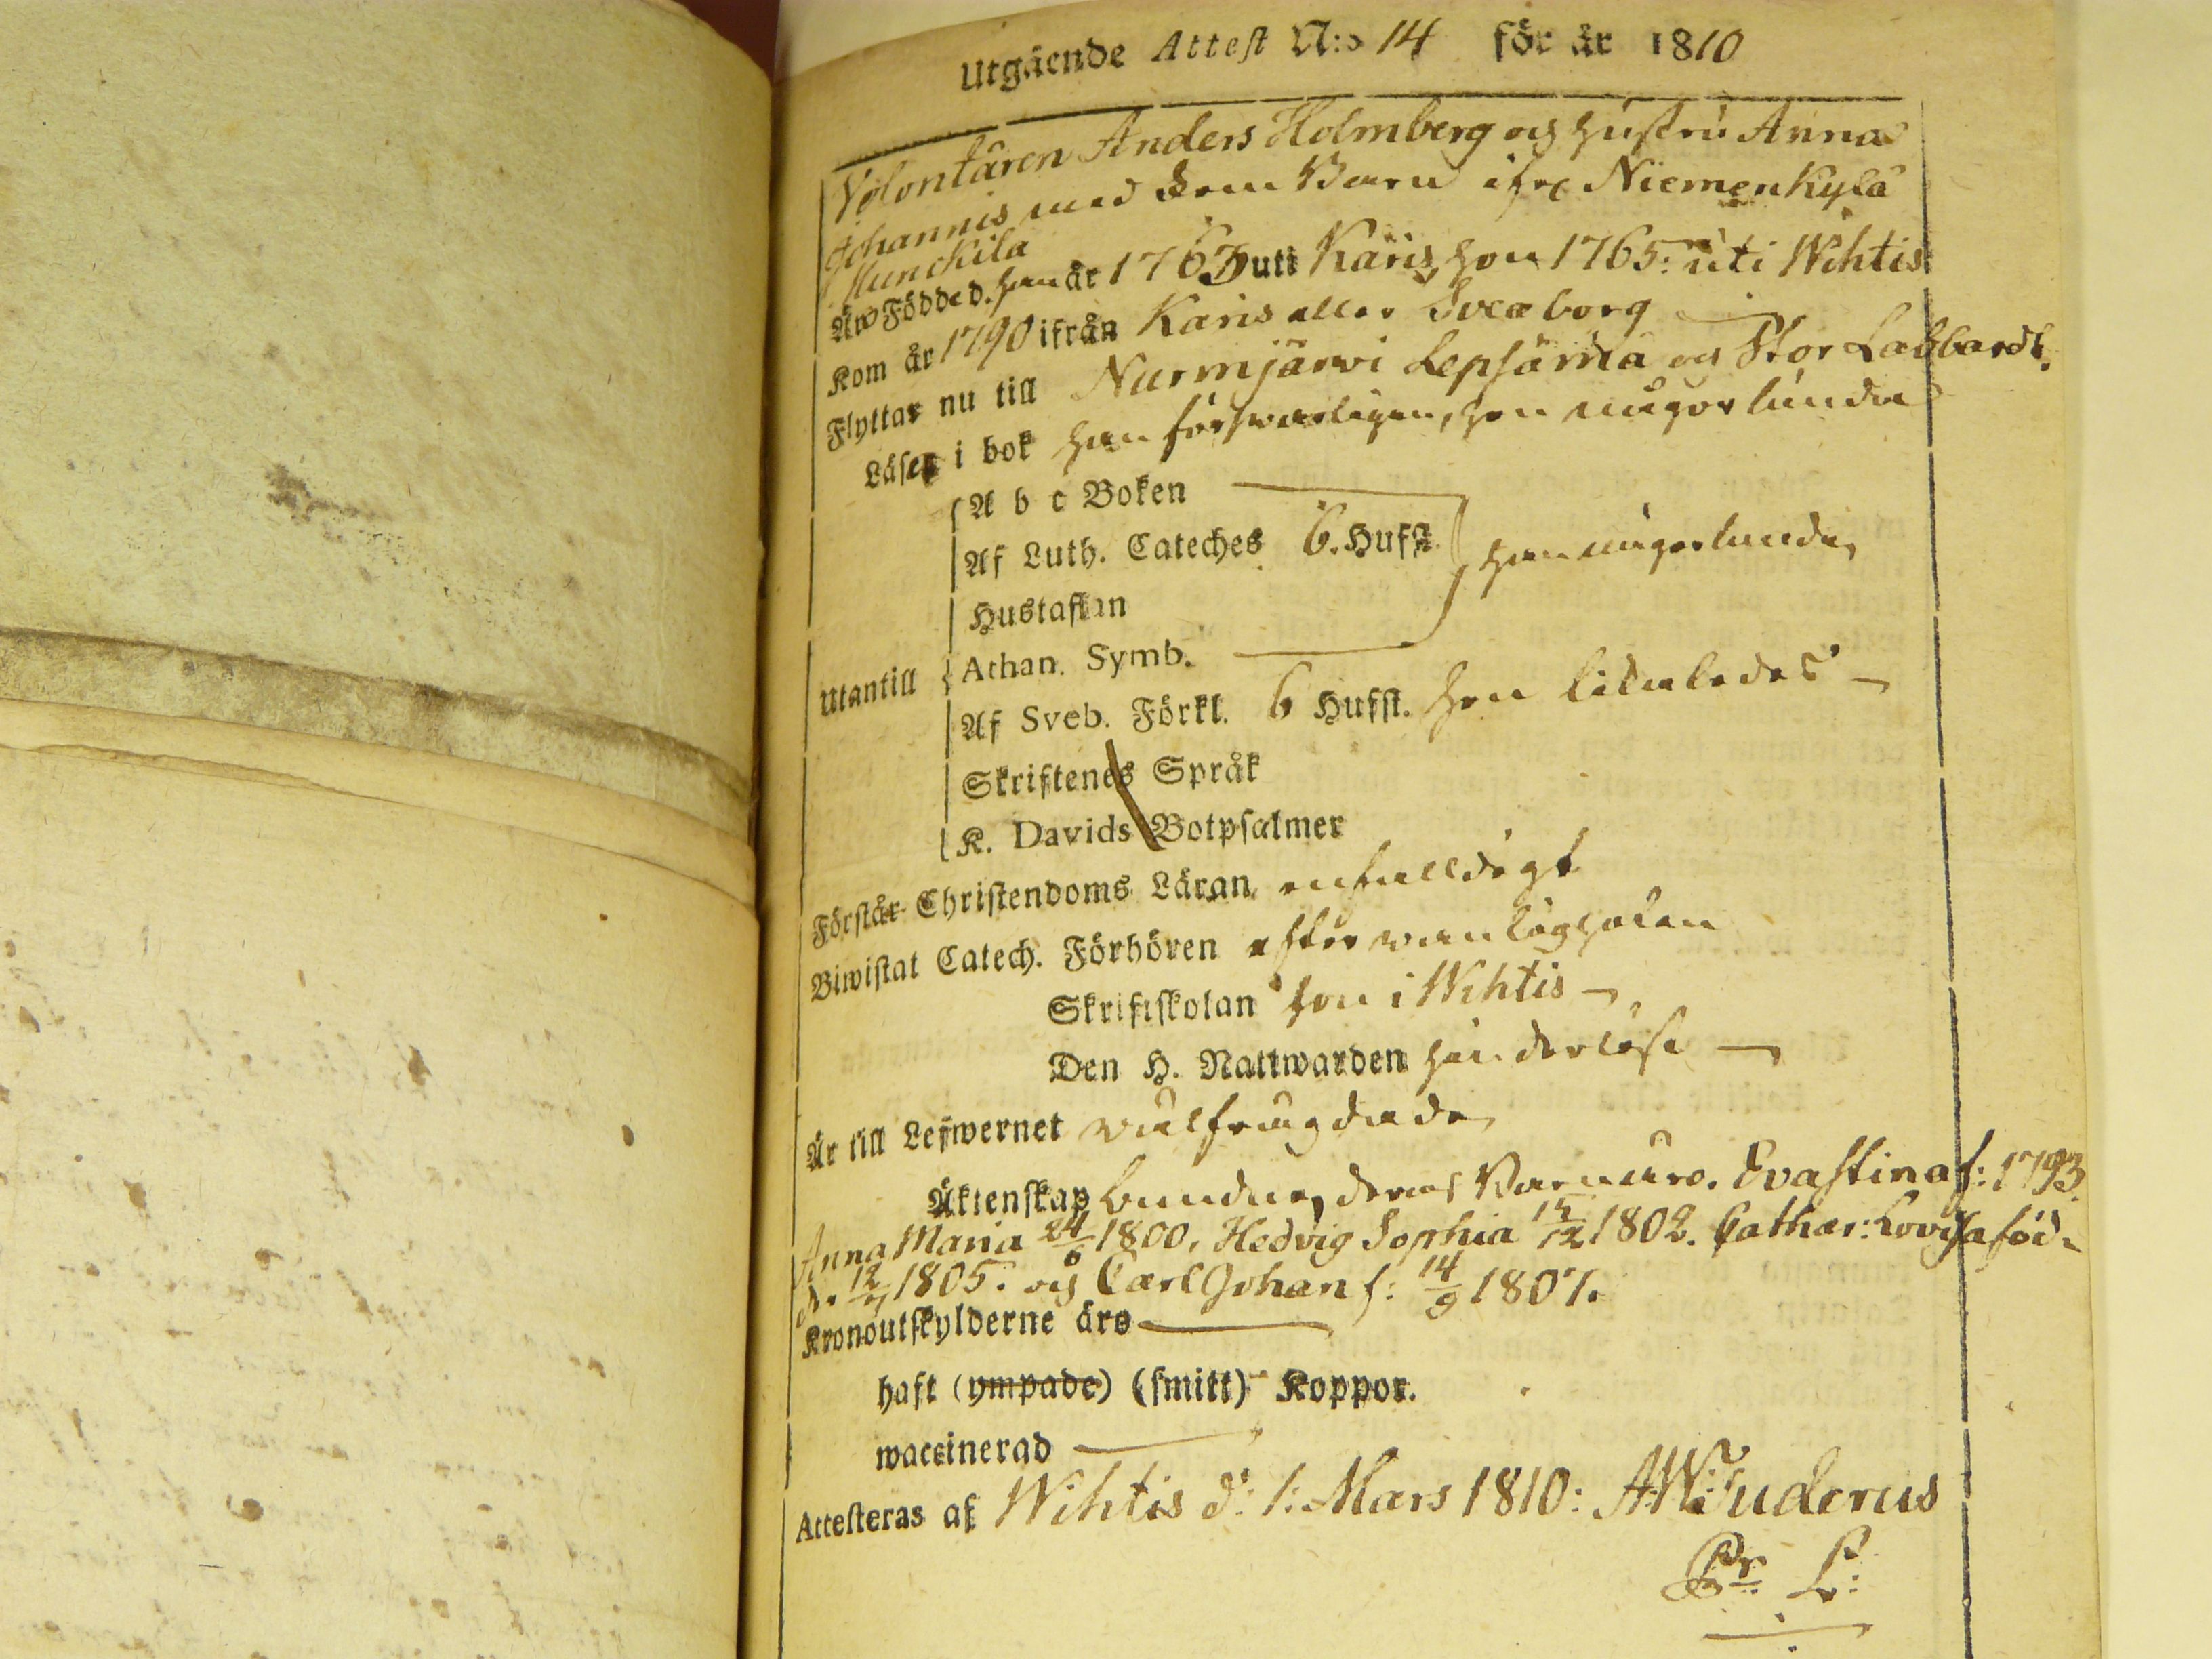 Utgående Attest N:o 14 för år 1810
Volontären Anders Holmberg och hustru Anna
Johannis med Fem Barn ifrå Niemenkylä
Munckila
Äro Födde d. han år 1763 uti Karis, hon 1765: uti Wihtis
Kom år 1790 ifrån Karis eller Sveaborg
Flyttar nu till Nurmjärwi Lepsämä och Stor Labbardt.
Läser i bok han förswarligen, hon någorlunda
Utantill
A b c Boken
Af Luth. Cateches 6. Hufst. han någorlunda,
Hustaflan
Athan. Symb.
Af Sveb. Förkl. 6 Hufst. hon likaledes
Skriftenes Språk
K. Davids Botpsalmer
Förstår Christendoms Läran enfalldigt
Biwistat Catech. Förhören efter wanligheten
Skriftskolan hon i Wihtis
Den H. Nattwarden hinderlöst
Är till Lefwernet wälfrägdade,
Äktenskap bundne, deras Barn äro. Eva Stina f: 1793.
Anna Maria 24/6 1800, Hedvig Sophia 15/12 1802. Cathar: Lovisa föd.
d. 12/7 1805. och Carl Johan f: 14/9 1807.
Kronoutskylderne äro
haft (ympade) (smitt) Koppor.
waccinerad
Attesteras af Wihtis d: 1: Mars 1810: A W: Tuderus
Pr L: